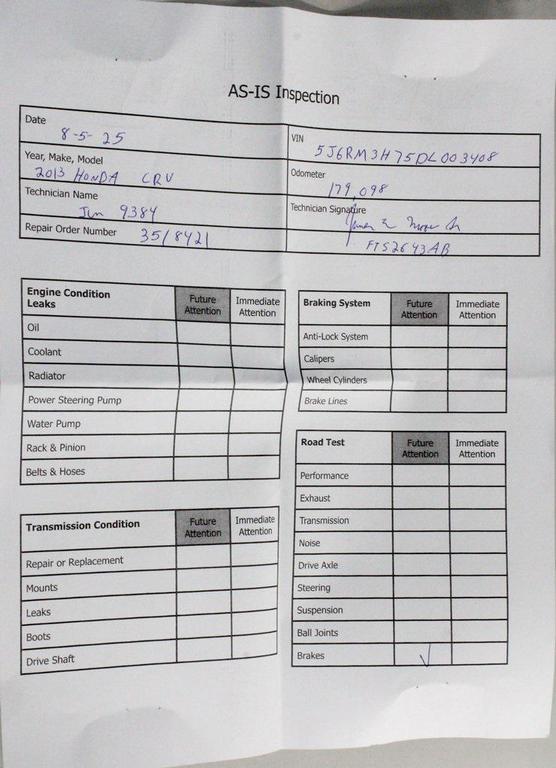 AS-IS Inspection
Date
8-5-25
VIN
5J6RM3H75DL003408
Year, Make, Model
2013 HONDA CRV
Odometer
179,098
Technician Name
Jim 9384
Technician Signature
Repair Order Number 35/8421
FTS2643AB
Engine Condition
Leaks
Future Attention
Immediate Attention
Oil
Coolant
Radiator
Power Steering Pump
Water Pump
Rack & Pinion
Belts & Hoses
Braking System
Future Attention
Immediate Attention
Anti-Lock System
Calipers
Wheel Cylinders
Brake Lines
Transmission Condition
Future Attention
Immediate Attention
Repair or Replacement
Mounts
Leaks
Boots
Drive Shaft
Road Test
Future Attention
Immediate Attention
Performance
Exhaust
Transmission
Noise
Drive Axle
Steering
Suspension
Ball Joints
Brakes ✓